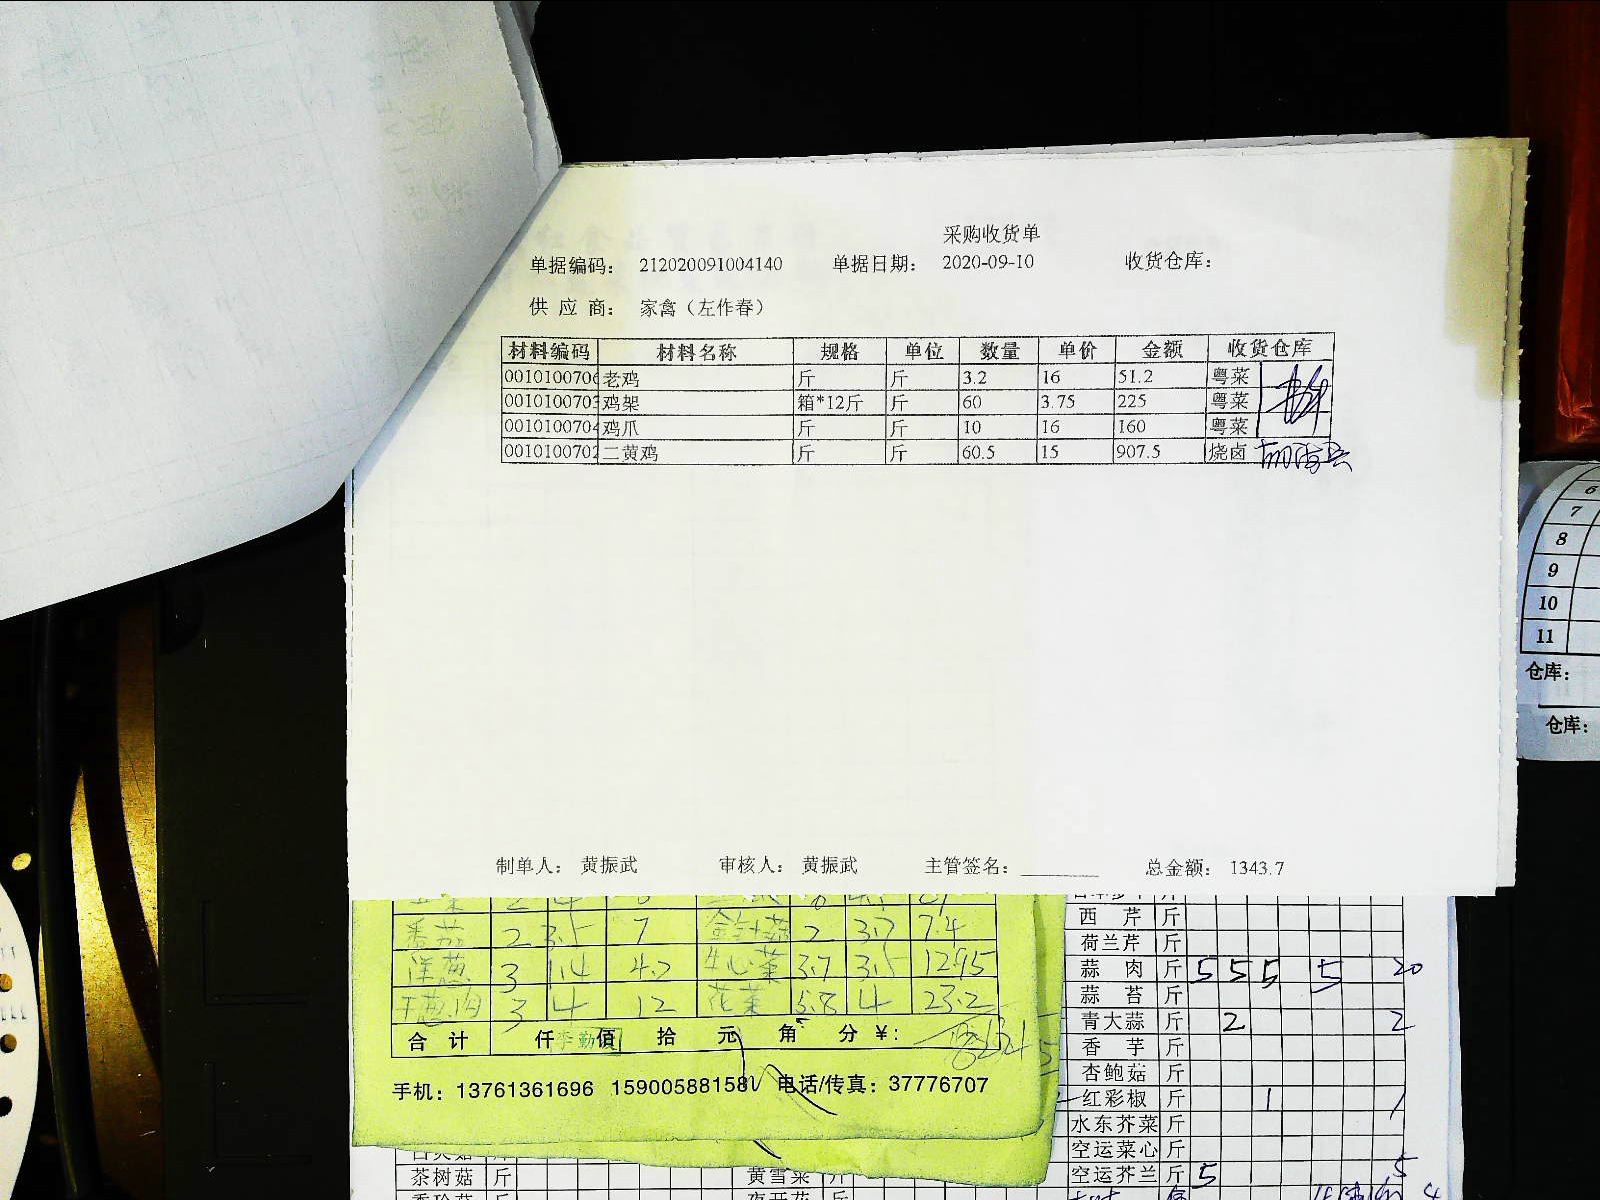 采购收货单
单据编码： 212020091004140 单据日期： 2020-09-10 收货仓库：
供 应 商： 家禽（左作春）
材料编码 材料名称 规格 单位 数量 单价 金额 收货仓库
0010100706 老鸡 斤 斤 3.2 16 51.2 粤菜
0010100703 鸡架 箱*12斤 斤 60 3.75 225 粤菜
0010100704 鸡爪 斤 斤 10 16 160 粤菜
0010100702 二黄鸡 斤 斤 60.5 15 907.5 烧卤
制单人： 黄振武 审核人： 黄振武 主管签名： 总金额： 1343.7
番茄 2 3.5 7 金针菇 2 3.7 7.4
洋葱 3 1.4 4.2 生心菜 3.7 3.5 12.95
干葱肉 3 4 12 花菜 5.8 4 23.2
合 计 仟 佰 拾 元 角 分 ¥:
手机：13761361696 15900588158 电话/传真：37776707
西 芹 斤
荷兰芹 斤
蒜 肉 斤 5 5 5 5 20
蒜 苔 斤
青大蒜 斤 2 2
香 芋 斤
杏鲍菇 斤
红彩椒 斤 1 1
水东芥菜 斤
空运菜心 斤
空运芥兰 斤 5 5
茶树菇 斤
黄雪菜 斤
6
7
8
9
10
11
仓库：
仓库：